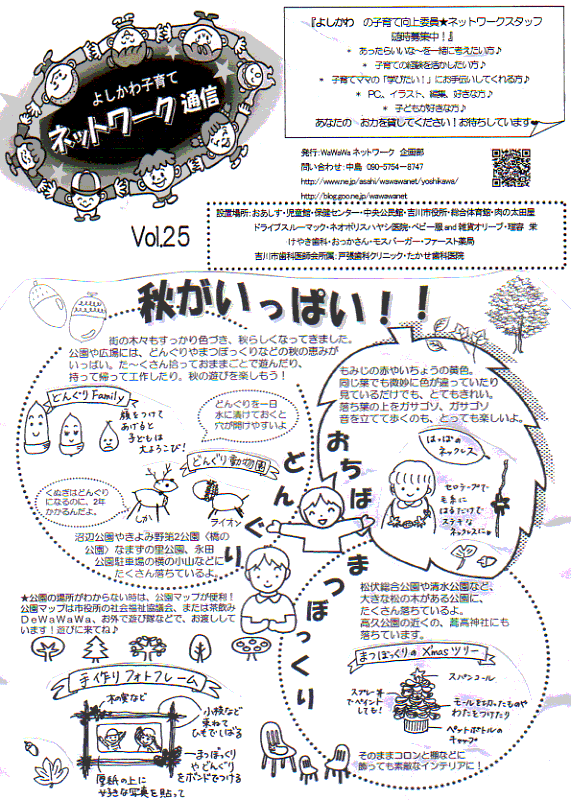 よしかわ子育て
ネットワーク通信
Vol.25
『よしかわ の子育て向上委員★ネットワークスタッフ
随時募集中！』
* あったらいいな～を一緒に考えたい方♪
* 子育ての経験を活かしたい方♪
* 子育てママの「学びたい！」にお手伝いしてくれる方♪
* PC、イラスト、編集、好きな方♪
* 子どもが好きな方♪
あなたの お力を貸してください！お待ちしています
発行：WaWaWa ネットワーク 企画部
問い合わせ：中島 090-5754-8747
http://www.ne.jp/asahi/wawawanet/yoshikawa/
http://blog.goo.ne.jp/wawawanet
設置場所：おあしす・児童館・保健センター・中央公民館・吉川市役所・総合体育館・肉の太田屋
ドライブスルーマック・ネオポリスハヤシ医院・ベビー服 and 雑貨オリーブ・理容 栄
けやき歯科・おっかさん・モスバーガー・ファースト薬局
吉川市歯科医師会所属：戸張歯科クリニック・たかせ歯科医院
秋がいっぱい！！
街の木々もすっかり色づき、秋らしくなってきました。
公園や広場には、どんぐりやまつぼっくりなどの秋の恵みが
いっぱい。た～くさん拾っておままごとで遊んだり、
持って帰って工作したり。秋の遊びを楽しもう！
どんぐりFamily
顔をつけて
あげると
子どもは
大よろこび！
どんぐりを一日
水に漬けておくと
穴が開けやすいよ
どんぐり動物園
くぬぎはどんぐり
になるのに、2年
かかるんだよ。
しか
ライオン
沼辺公園やきよみ野第2公園（橋の
公園）なまずの里公園、永田
公園駐車場の横の小山などに
たくさん落ちているよ。
どんぐり
おちば
まつぼっくり
もみじの赤やいちょうの黄色。
同じ葉でも微妙に色が違っていたり
見ているだけでも、とてもきれい。
落ち葉の上をガサゴソ、ガサゴソ
音を立てて歩くのも、とっても楽しいよ。
はっぱの
ネックレス
セロテープで
毛糸に
はるだけで
ステキな
ネックレスに
★公園の場所がわからない時は、公園マップが便利！
公園マップは市役所の社会福祉協議会、または茶飲み
ＤｅＷａＷａＷａ、お外で遊び隊などで、お渡ししてい
ます！遊びに来てね♪
手作りフォトフレーム
木の実など
小枝など
束ねて
ひもでしばる
まつぼっくり
やどんぐり
をボンドでつける
厚紙の上に
好きな写真を貼って
松伏総合公園や清水公園など、
大きな松の木がある公園に、
たくさん落ちているよ。
高久公園の近くの、蕎高神社にも
落ちています。
まつぼっくりの Xmasツリー
スパンコール
スプレー等
でペイント
しても！
モールを切ったものや
わたをつけたり
ペットボトルの
キャップ
そのままコロンと棚などに
飾っても素敵なインテリアに！